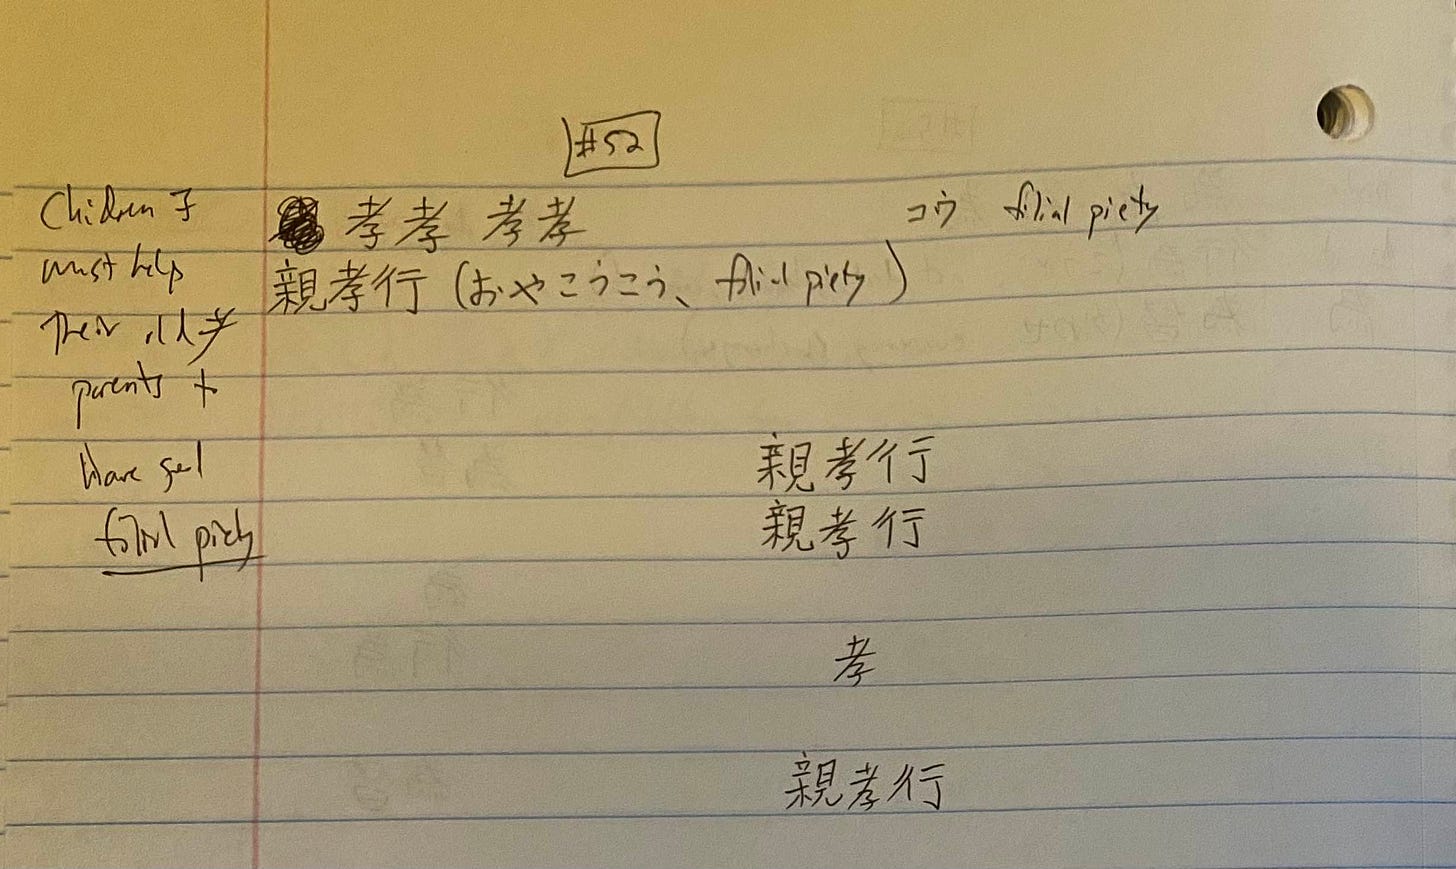 #52
Children 子
must help
their old 耂
parents to
have
filial piety
孝孝 孝孝 コウ filial piety
親孝行 (おやこうこう、filial piety)
親孝行
親孝行
孝
親孝行